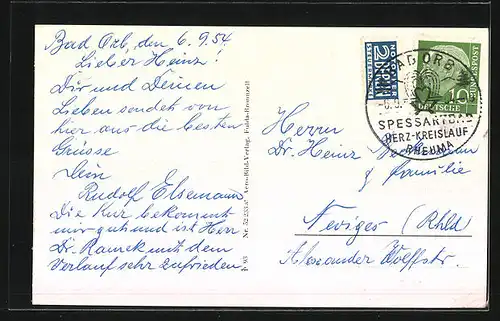 Bad Orb, den 6.9.54.
Lieber Heinz!
Dir und Deinen
Lieben sendet von
hier aus die besten
Grüsse
Dein
Rudolf Elsemann
Die Kur bekommt
mir gut und ist Herr
Dr. Ramek mit dem
Verlauf sehr zufrieden.
Fulda-Bronnzell
NOTOPFER
2 BERLIN
STEUERMARKE
DEUTSCHE POST
10
BAD ORB
SPESSARTBAD
HERZ-KREISLAUF
RHEUMA
Herrn
Dr. Heinz
& Familie
Neviges (Rhld
Alexander